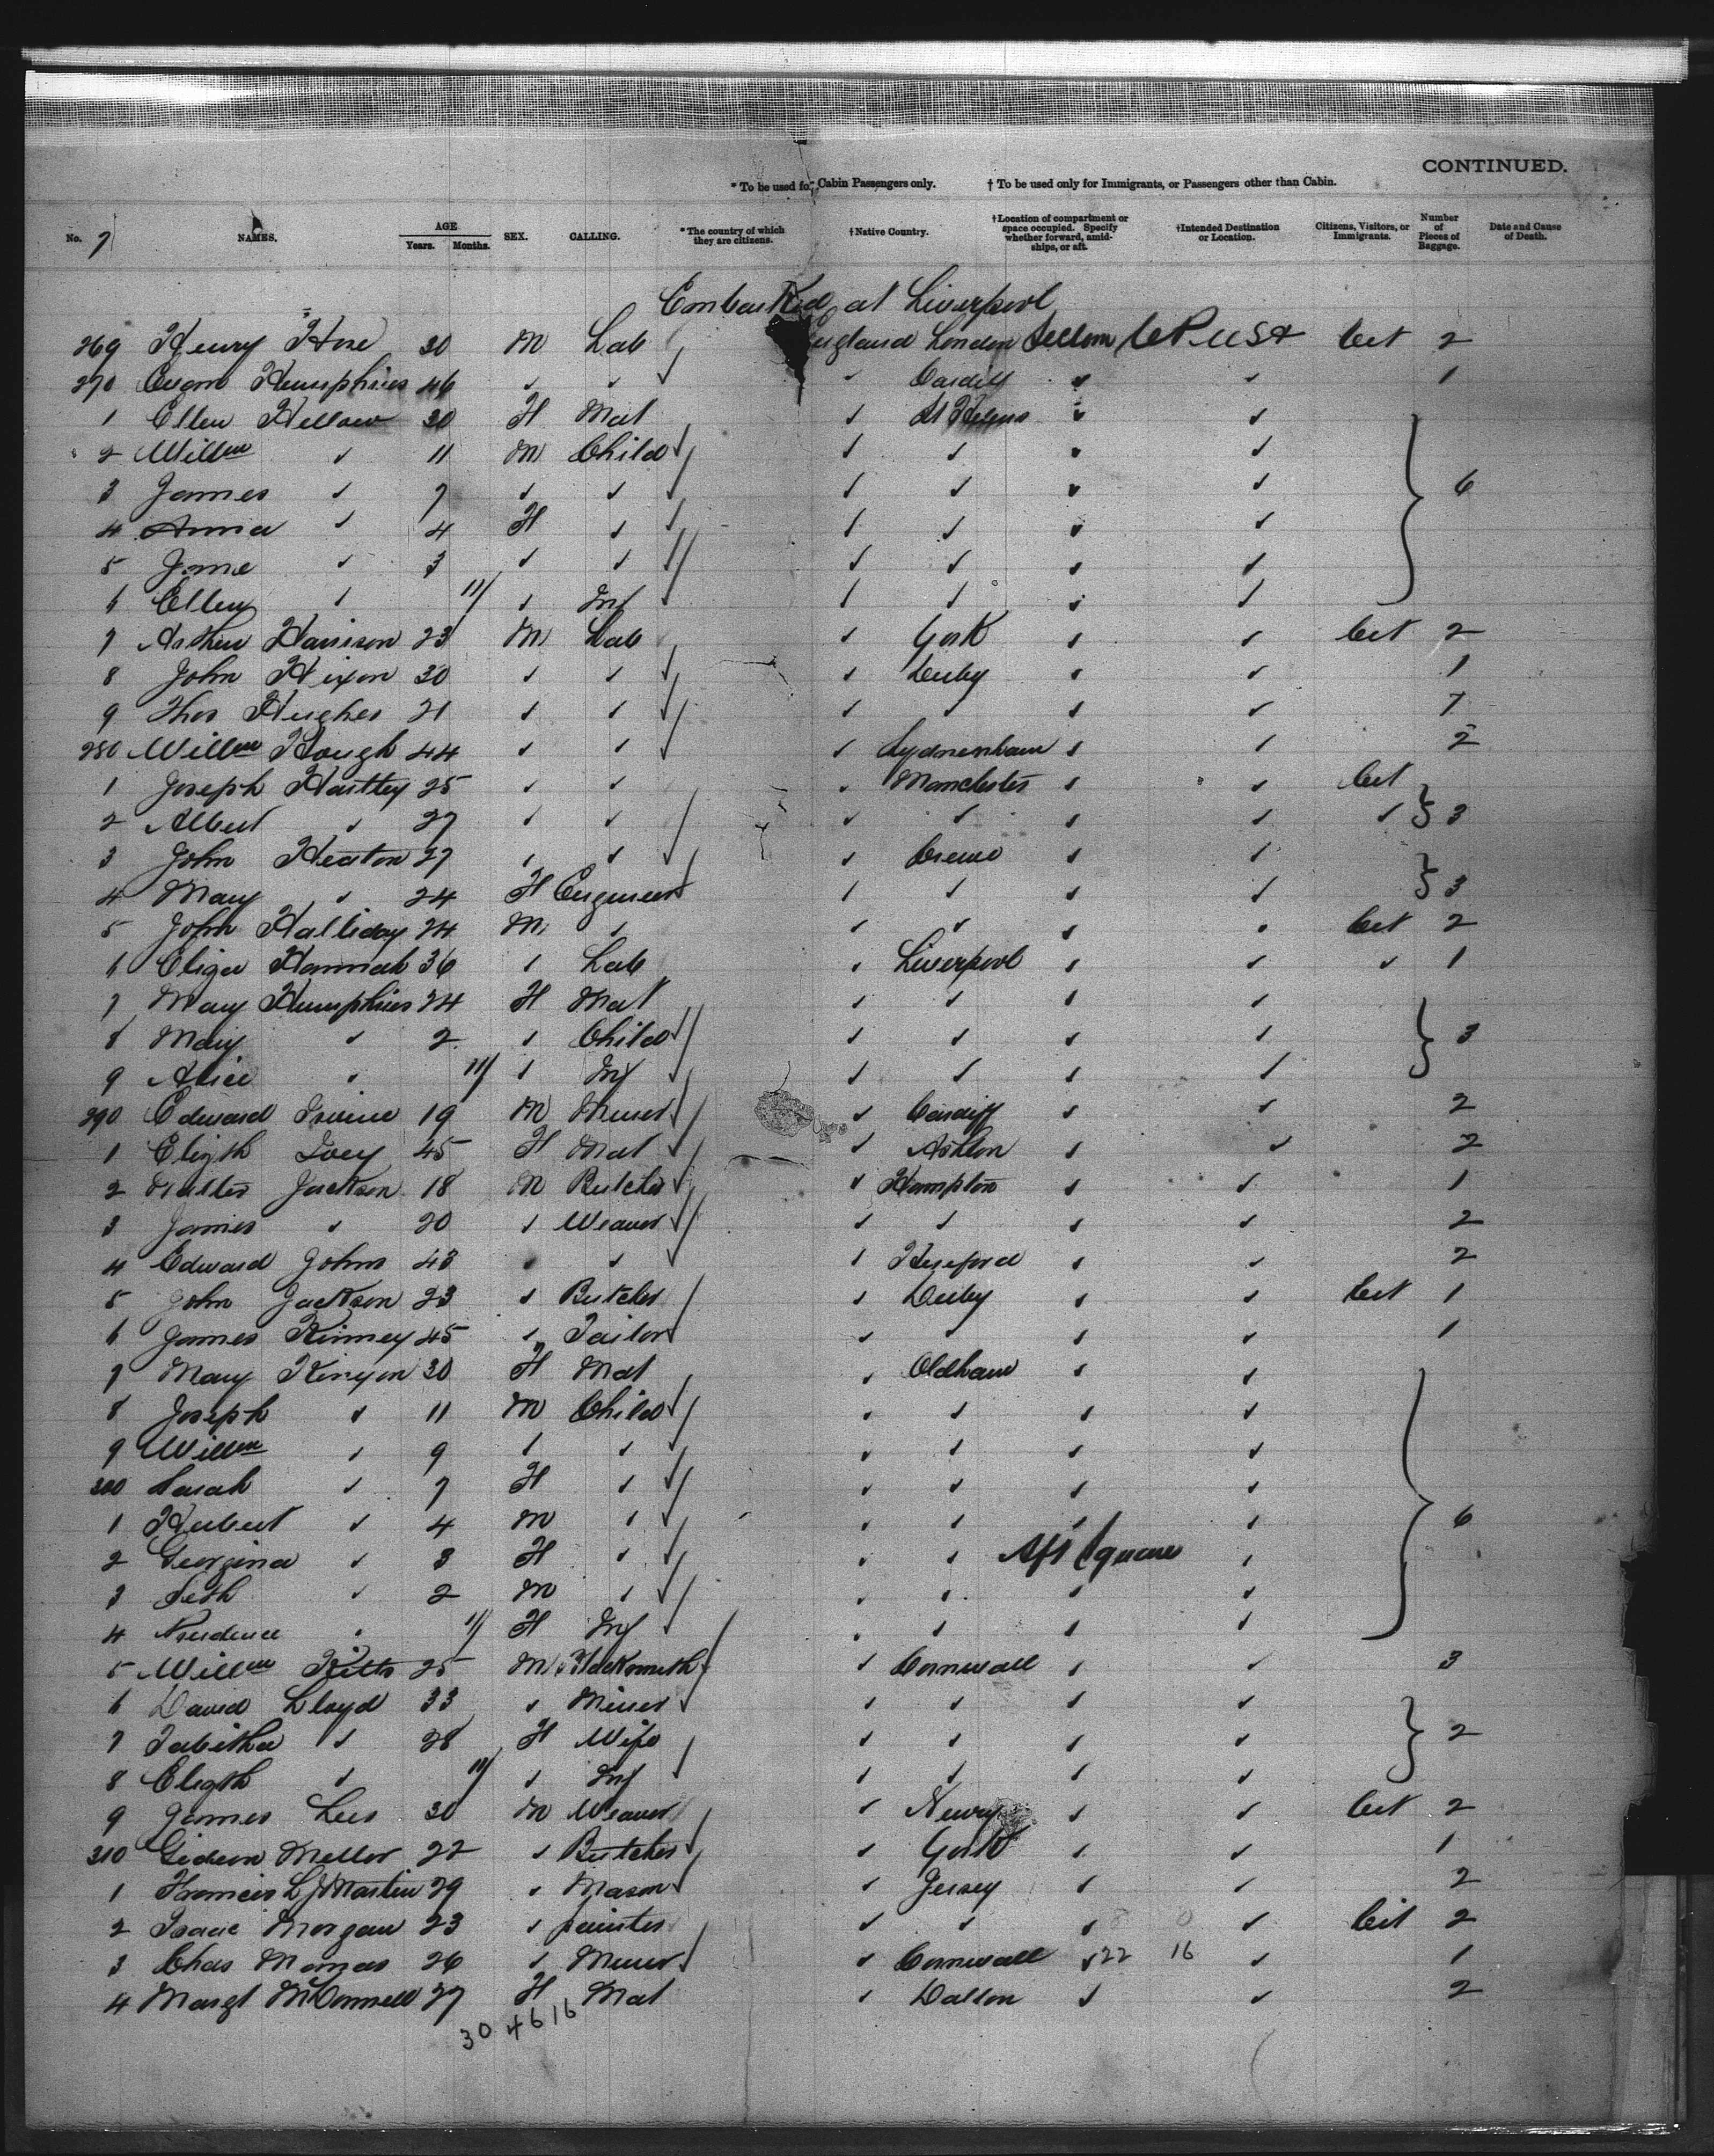 CONTINUED.
* To be used for Cabin Passengers only. † To be used only for Immigrants, or Passengers other than Cabin.
No. 7 NAMES. AGE Years. Months. SEX. CALLING. * The country of which they are citizens. † Native Country. † Location of compartment or space occupied. Specify whether forward, amidships, or aft. † Intended Destination or Location. Citizens, Visitors, or Immigrants. Number of Pieces of Baggage. Date and Cause of Death.
Embarked at Liverpool
269 Henry 30 M Lab England London USA Cit 2
270 Humphries 46 ✓ ✓ ✓ ✓ ✓ 1
1 Ellen 30 F Mat ✓ St Helens ✓ ✓
2 Willm ✓ 11 M Child ✓ ✓ ✓ ✓
3 James ✓ 7 ✓ ✓ ✓ ✓ ✓ ✓ 6
4 Anna ✓ 4 F ✓ ✓ ✓ ✓ ✓
5 Jane ✓ 3 ✓ ✓ ✓ ✓ ✓ ✓
6 Ellen ✓ 11/ ✓ Inf ✓ ✓ ✓ ✓
7 Arthur Harrison 23 M Lab ✓ York ✓ ✓ Cit 2
8 John Hixon 30 ✓ ✓ ✓ Derby ✓ ✓ 1
9 Thos Hughes 21 ✓ ✓ ✓ ✓ ✓ ✓ 7
280 Willm Hough 44 ✓ ✓ ✓ Sydnenham ✓ ✓ 2
1 Joseph Hartley 25 ✓ ✓ ✓ Manchester ✓ ✓ Cit
2 Albert ✓ 27 ✓ ✓ ✓ ✓ ✓ ✓ ✓ 3
3 John Heaton 27 ✓ ✓ ✓ Crewe ✓ ✓
4 Mary ✓ 24 F Engineer ✓ ✓ ✓ ✓ 3
5 John Halliday 24 M ✓ ✓ ✓ ✓ ✓ Cit 2
6 Eliza Hannah 36 ✓ Lab ✓ Liverpool ✓ ✓ ✓ 1
7 Mary Humphries 24 F Mat ✓ ✓ ✓ ✓
8 Mary ✓ 2 ✓ Child ✓ ✓ ✓ ✓ 3
9 Alice ✓ 11/ ✓ Inf ✓ ✓ ✓ ✓
290 Edward Irvine 19 M Miner ✓ Cardiff ✓ ✓ 2
1 Elizth Ivey 45 F Mat ✓ Ashton ✓ ✓ 2
2 Walter Jackson 18 M Butcher ✓ Hampton ✓ ✓ 1
3 James ✓ 20 ✓ Weaver ✓ ✓ ✓ ✓ 2
4 Edward Johns 43 ✓ ✓ ✓ Hereford ✓ ✓ 2
5 John Jackson 23 ✓ Butcher ✓ Derby ✓ ✓ Cit 1
6 James Kinney 45 ✓ Tailor ✓ ✓ ✓ ✓ 1
7 Mary Kinyon 30 F Mat ✓ Oldham ✓ ✓
8 Joseph ✓ 11 M Child ✓ ✓ ✓ ✓
9 Willm ✓ 9 ✓ ✓ ✓ ✓ ✓ ✓
300 Sarah ✓ 7 F ✓ ✓ ✓ ✓ ✓
1 Hubert ✓ 4 M ✓ ✓ ✓ ✓ ✓ 6
2 Georgina ✓ 3 F ✓ ✓ ✓ Aft ✓
3 Seth ✓ 2 M ✓ ✓ ✓ ✓ ✓
4 Prudence ✓ 11/ F Inf ✓ ✓ ✓ ✓
5 Willm Kitts 25 M Blacksmith ✓ Cornwall ✓ ✓ 3
6 David Lloyd 33 ✓ Miner ✓ ✓ ✓ ✓
7 Tabitha ✓ 28 F Wife ✓ ✓ ✓ ✓ 2
8 Elizth ✓ 11/ ✓ Inf ✓ ✓ ✓ ✓
9 James Lees 30 M Weaver ✓ Newry ✓ ✓ Cit 2
310 Gideon Mellor 22 ✓ Butcher ✓ York ✓ ✓ 1
1 Francis Martin 29 ✓ Mason ✓ Jersey ✓ ✓ 2
2 Isaac Morgan 23 ✓ painter ✓ ✓ ✓ ✓ Cit 2
3 Chas 26 ✓ Miner ✓ Cornwall ✓ 22 16 ✓ 1
4 Margt McConnell 27 F Mat ✓ Dalton ✓ ✓ 2
30 46 16